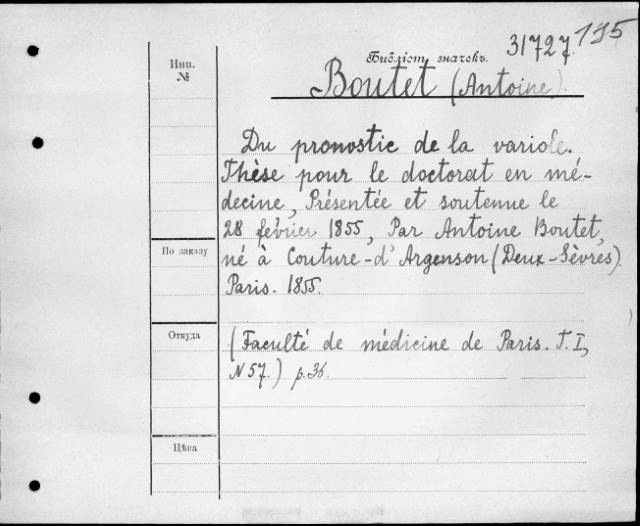 31727 195
Библіот. значекъ.
Инв.
№
Boutet (Antoine).
Du pronostic de la variole.
Thèse pour le doctorat en mé-
decine, Présentée et soutenue le
28 février 1855, Par Antoine Boutet,
По заказу
né à Couture-d'Argenson (Deux-Sèvres)
Paris. 1855.
Откуда
(Faculté de médicine de Paris. T. I,
N 57.) p. 36.
Цѣна